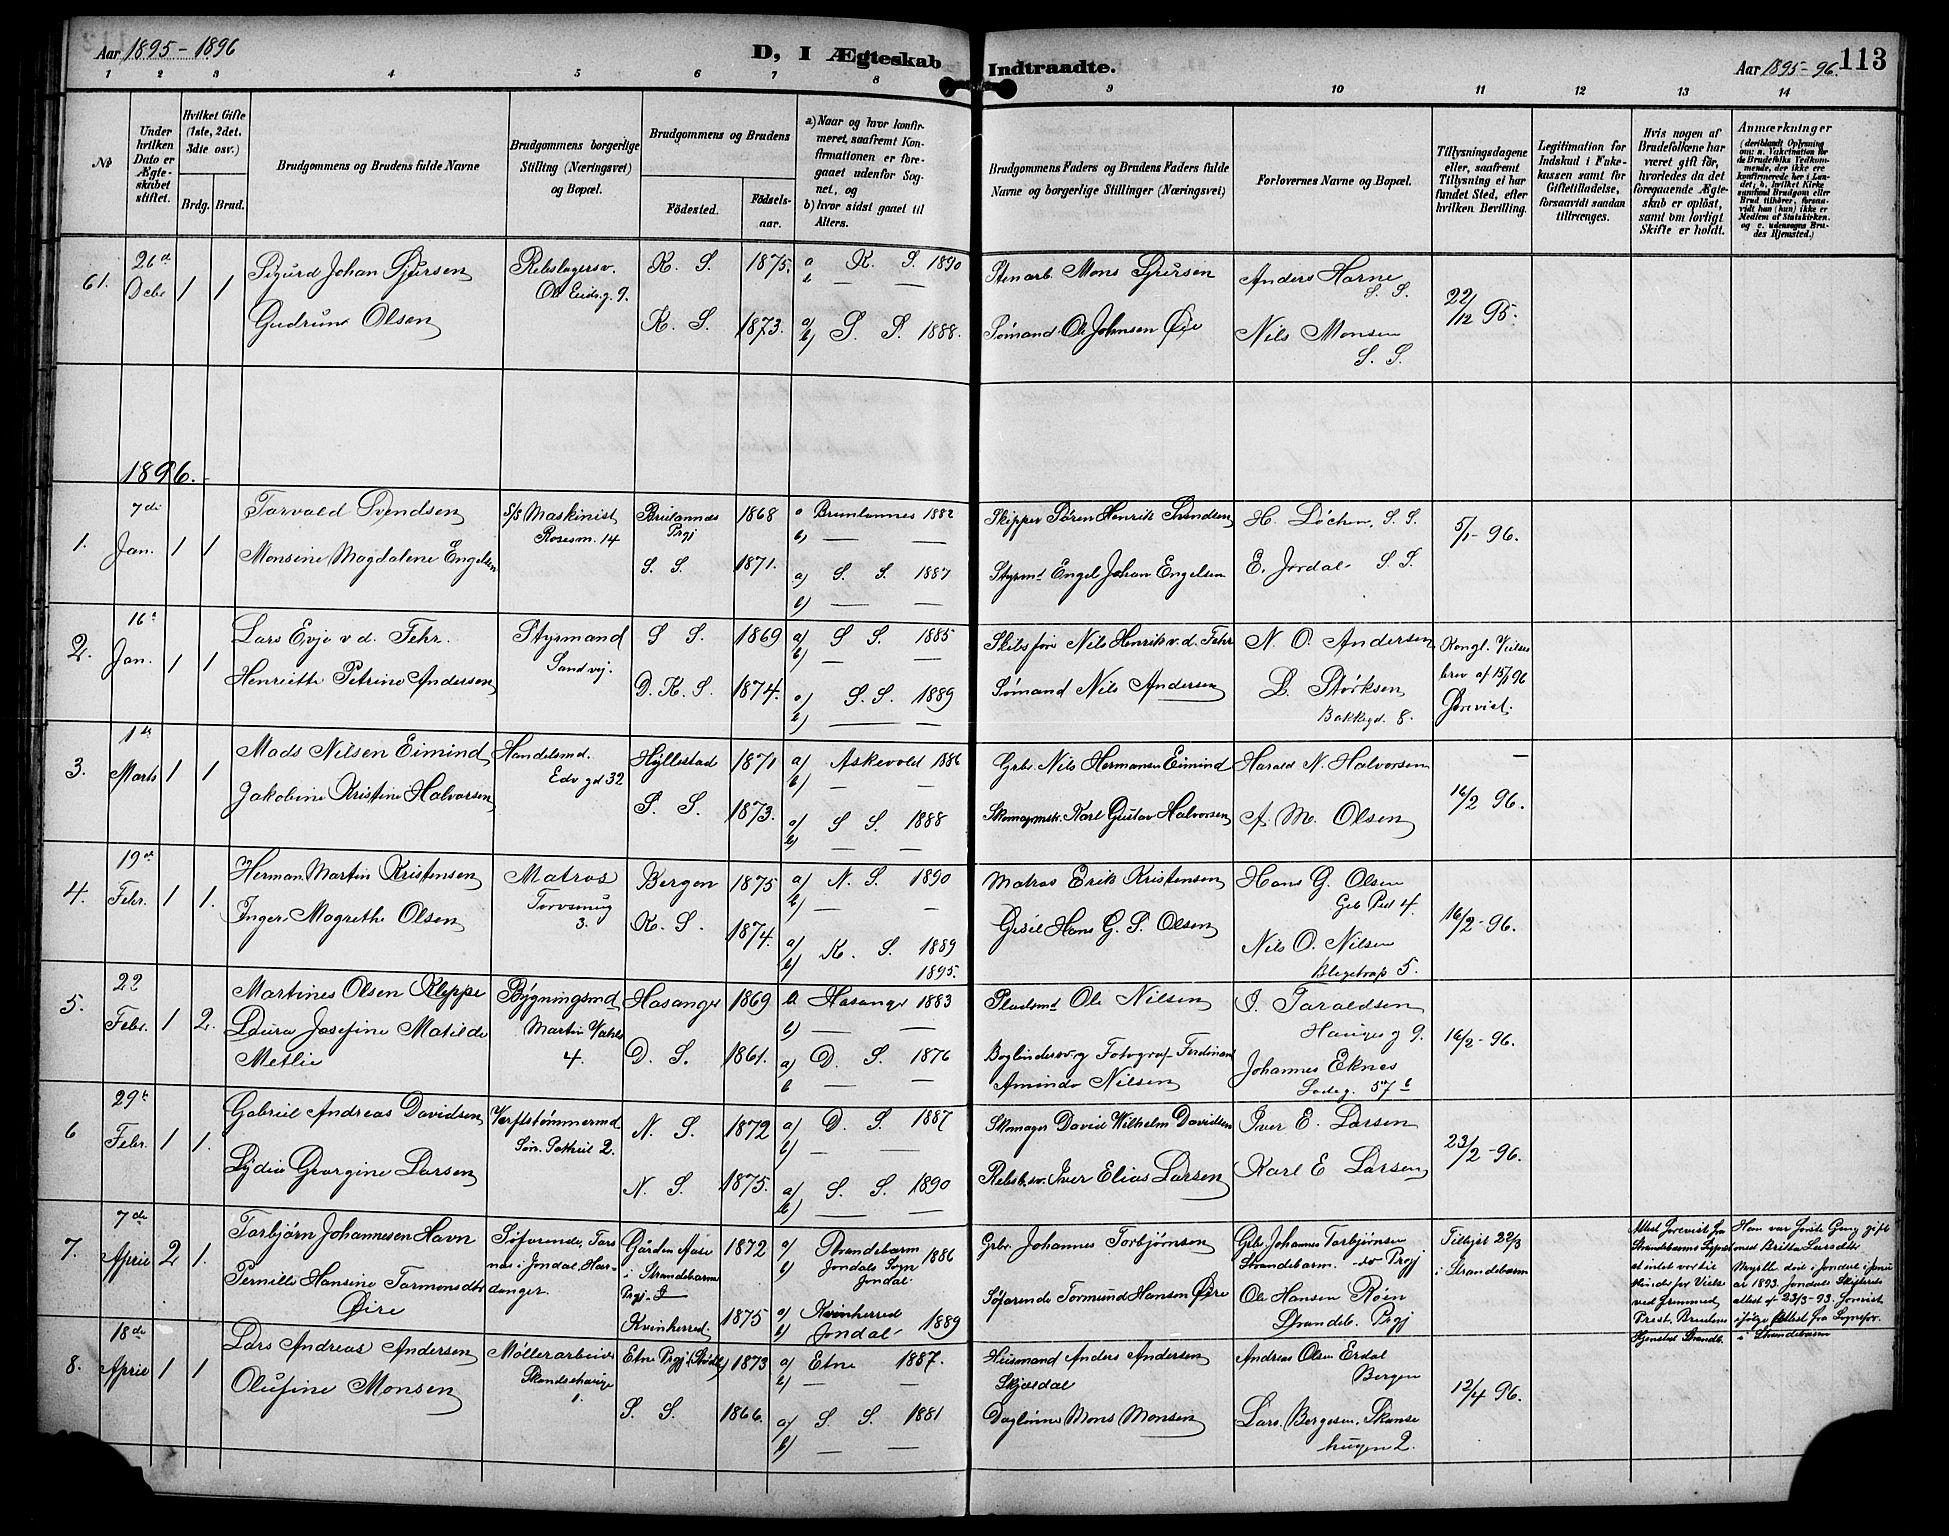 Aar 1895-1896
D, I Ægteskab Indtraadte.
Aar 1895-96. 113
1 2 3 4 5 6 7 8 9 10 11 12 13 14
No
Under hvilken Dato er Ægteskabet stiftet.
Hvilket Gifte (1ste, 2det, 3die osv.)
Brdg. Brud.
Brudgommens og Brudens fulde Navne
Brudgommens borgerlige Stilling (Næringsvei) og Bopæl.
Brudgommens og Brudens
Fødested. Fødselsaar.
a) Naar og hvor konfirmeret, saafremt Konfirmationen er foregaaet udenfor Sognet, og
b) hvor sidst gaaet til Alters.
Brudgommens Faders og Brudens Faders fulde Navne og borgerlige Stillinger (Næringsvei)
Forlovernes Navne og Bopæl.
Tillysningsdagene eller, saafremt Tillysning ei har fundet Sted, efter hvilken Bevilling.
Legitimation for Indskud i Enkekassen samt for Giftetilladelse, forsaavidt saadan tiltrænges.
Hvis nogen af Brudefolkene har været gift før, hvorledes da det foregaaende Ægteskab er opløst, samt om lovligt Skifte er holdt.
Anmærkninger (deriblandt Oplysning om: a. Vakcination for de Brudefolks Vedkommende, der ikke ere konfirmerede her i Landet; b. hvilket Kirkesamfund Brudgom eller Brud tilhører, forsaavidt han (hun) ikke er Medlem af Statskirken, og c. udensogns Brudes Hjemsted.)
61. 26d Debr 1 1
Sigurd Johan Sjursen
Rebslagersv.
K. S. 1875. a K. S. 1890
b — —
Stenarb Mons Sjursen
Anders Harne S. S.
22/12 95.
Gudrun Olsen
K. S. 1873. a) b) S. S. 1888.
Sømand Ole Johnsen Øie
Nils Monsen S. S.
1896.
1. 7de Jan. 1 1
Torvald Svendsen
S/S Maskinist Rosesm. 14
Prgj 1868 a Brunlannes 1882
b) — —
Skipper Sören Henrik Svendsen
H. Löchen, S. S.
5/1-96.
Monsine Magdalene Engelsen
S. S. 1871. a) S. S. 1887
b) — —
Styrmd Engel Johan Engelsen
E. Jordal S. S.
2. 16d Jan. 1 1
Lars Evje v. d. Fehr.
Styrmand Sandvig.
S S. 1869 a) S S. 1885
b) — —
Skibsfører Nils Henrik v. d. Fehr
N. O. Andersen
Kongl. Vielsesbrev af 15/1 96 Forevist.
Henriette Petrine Andersen
D. K. S. 1874. a) S. S. 1889
b) — —
Sømand Nils Andersen
L. Störksen Bakkegd. 8.
3. 1ste Marts 1 1
Mads Nilsen Eimind
Handelsmd. Edv gd 32
Hyllestad 1871 a) Askevold 1886
b) — —
Grbr. Nils Hermansen Eimind
Harald N. Halvorsen
—
16/2 96.
Jakobine Kristine Halvorsen
S. S. 1873. a) S S. 1888
b) — —
Skomagermstr. Karl Gustav Halvorsen
A. M. Olsen
4. 19de Febr. 1 1.
Herman Martin Kristensen
Matros Torvsmug 3.
Bergen 1875 a) N. S. 1890
b) — —
Matros Erik Kristensen
Hans G. Olsen
16/2-96.
Inger Magrethe Olsen
K. S. 1874. a) b) K. S. 1889
1895.
Hans G. S. Olsen
Nils O. Nilsen
5.
5. 22 Febr. 1 2.
Martines Olsen Kleppe
Bygningsmd Martin Vahls 4.
1869 1883
b) — —
Pladsmd Ole Nilsen
J. Taraldsen Hauges g 9.
16/2-96.
Laura Josefine Matilde Metlie
D. S. 1861. a) D. S. 1876
b — —
Bogbindersv. og Fotograf Ferdinand Amindo Nilsen
Johannes Eknes Ladeg. 57 b
6 29de Febr. 1 1.
Gabriel Andreas Davidsen
Værftstømmermd
N. S. 1872 a) D. S. 1887
b) — —
Skomager David Wilhelm Davidsen
Iver E. Larsen
23/2-96.
Lydia Georgine Larsen
N. S. 1875. a) S. S. 1890
b) — —
Rebsl. sv. Iver Elias Larsen
Karl E Larsen
7. 7de April 2 1.
Torbjørn Johannesen Havn
Søfarende, Torsnes i Jondal, Hardanger.
Gården Aase i Strandebarm Prgj. 1872 a) b) Strandebarm Jondals Sogn Jondal 1886
Grbr. Johannes Torbjørnsen
Gbr. Johannes Torbjørnsen Strandebarm. do Prgj
Tillyst 22/3 i Strandebarm
Pernille Hansine Tormodsdtr Øire
Kvinherred 1875 a) Kvinherred b) Jondal 1889
Søfarende Tormund Hansen Øire
Ole Hansen Röen Strandeb. Prgj
Attest forevist fra Strandebarms Sogneprest at intet var til Hinder for Vielse ved fremmed Prest, Brudens Hjemsted Strandb.
Han var første Gang gift med Britha Larsdtr Myrkle død i Jondal i Januar 1893. Jondals Skifterets attest af 23/3-93. Forevist ifølge Attest fra Sognepr. i Strandebarm
8. 18de April 1 1
Lars Andreas Andersen
Møllerarbeider Skandsehaugen 1.
Etne Prgj 1873 a) Etne 1887.
b) — —
Husmand Anders Andersen Skjoldal
Andreas Olsen Erdal Bergen
12/4 96.
Olufine Monsen
S. S. 1866. a) S. S. 1881
b) — —
Daglönner Mons Monsen
Lars Bergesen. Skansehugen 2.